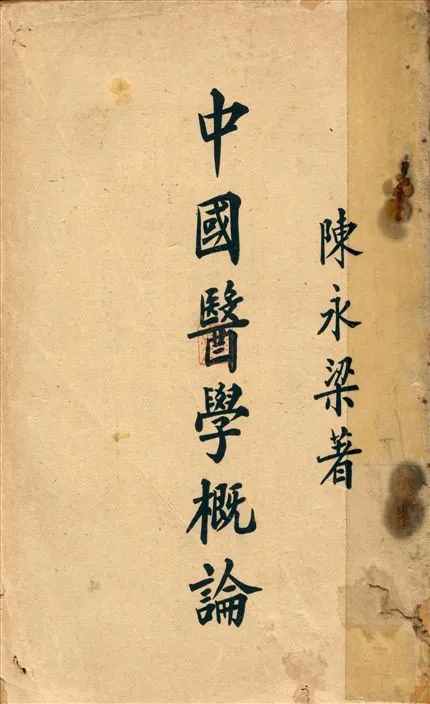 陳永梁著
中國醫學概論